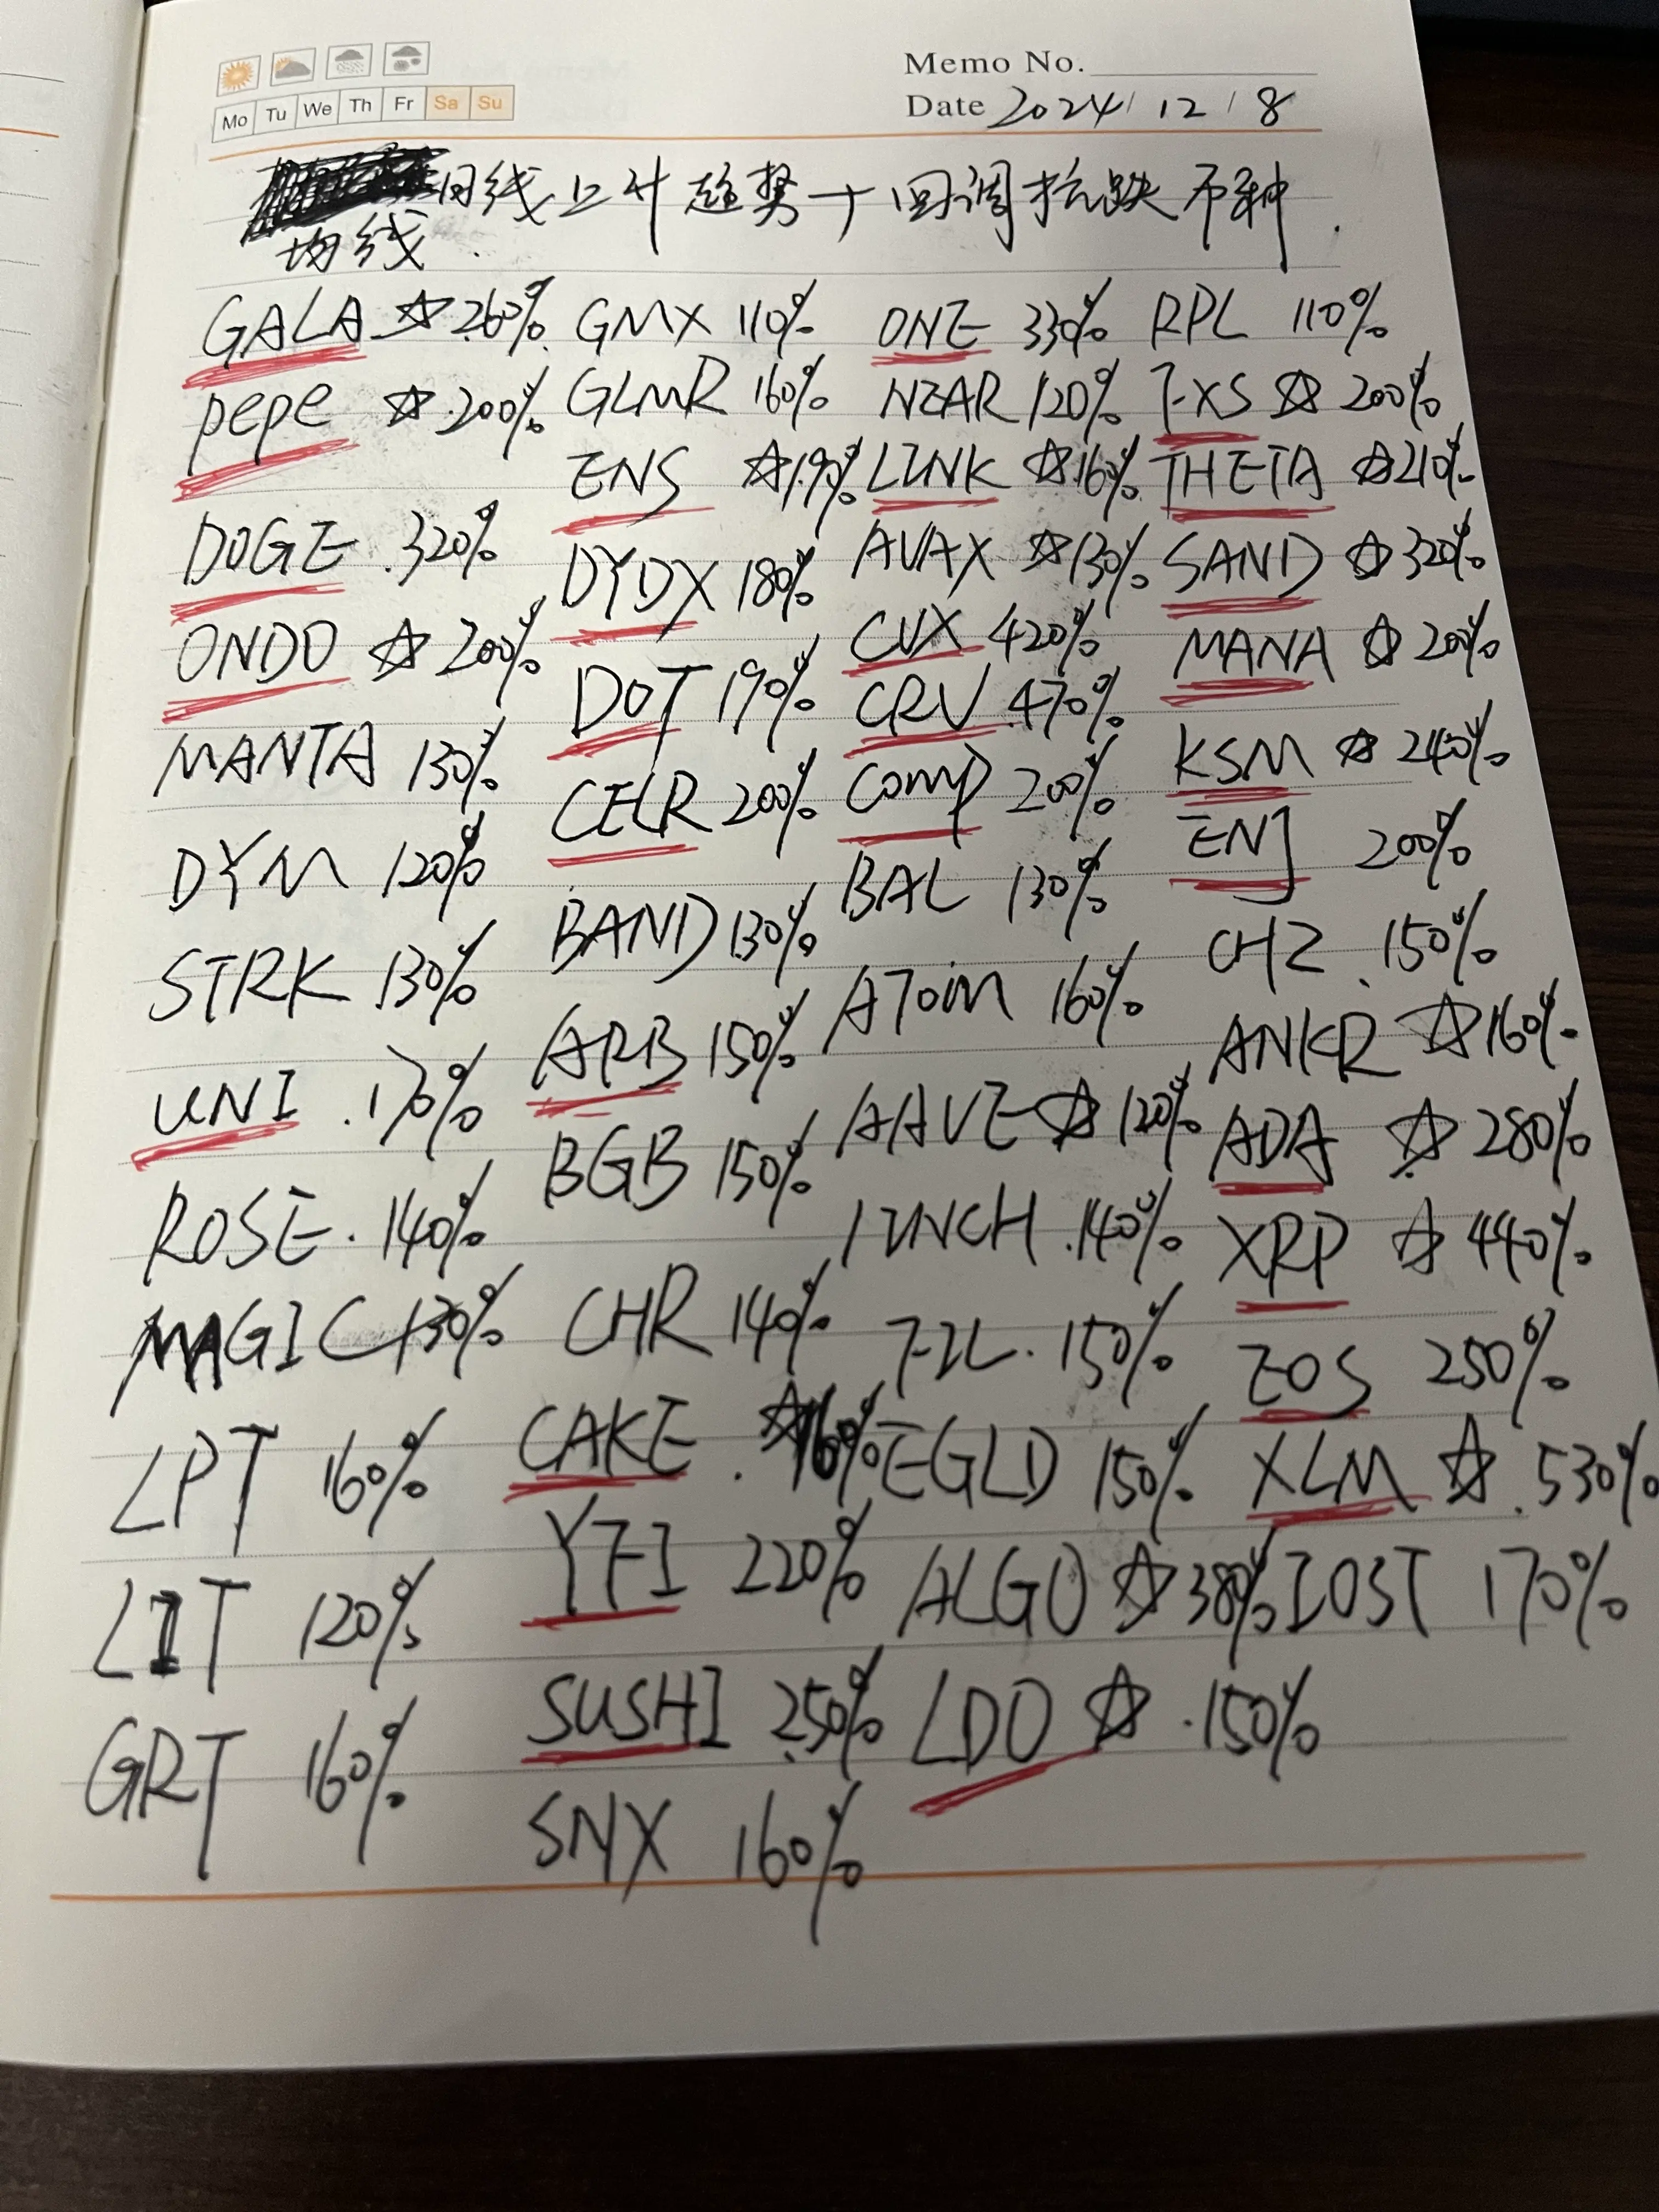 Memo No.
Mo Tu We Th Fr Sa Su
Date 2024/12/8
日线上升趋势+回调抗跌币种.
均线
GALA ☆ 260%
pepe ☆ 200%
DOGE 320%
ONDO ☆ 200%
MANTA 130%
DYM 120%
STRK 130%
UNI 170%
ROSE 140%
MAGIC 130%
LPT 160%
LIT 120%
GRT 160%
GMX 110%
GLMR 160%
ENS ☆ 190%
DYDX 180%
DOT 190%
CELR 200%
BAND 130%
ARB 150%
BGB 150%
CHR 140%
CAKE ☆ 160%
YFI 220%
SUSHI 250%
SNX 160%
ONE 330%
NEAR 120%
LINK ☆ 160%
AVAX ☆ 130%
CVX 420%
CRV 470%
COMP 200%
BAL 130%
ATOM 160%
AAVE ☆ 120%
1INCH 140%
FIL 150%
EGLD 150%
ALGO ☆ 380%
LDO ☆ 150%
RPL 110%
FXS ☆ 200%
THETA ☆ 210%
SAND ☆ 320%
MANA ☆ 200%
KSM ☆ 240%
ENJ 200%
CHZ 150%
ANKR ☆ 160%
ADA ☆ 280%
XRP ☆ 440%
EOS 250%
XLM ☆ 530%
IOST 170%